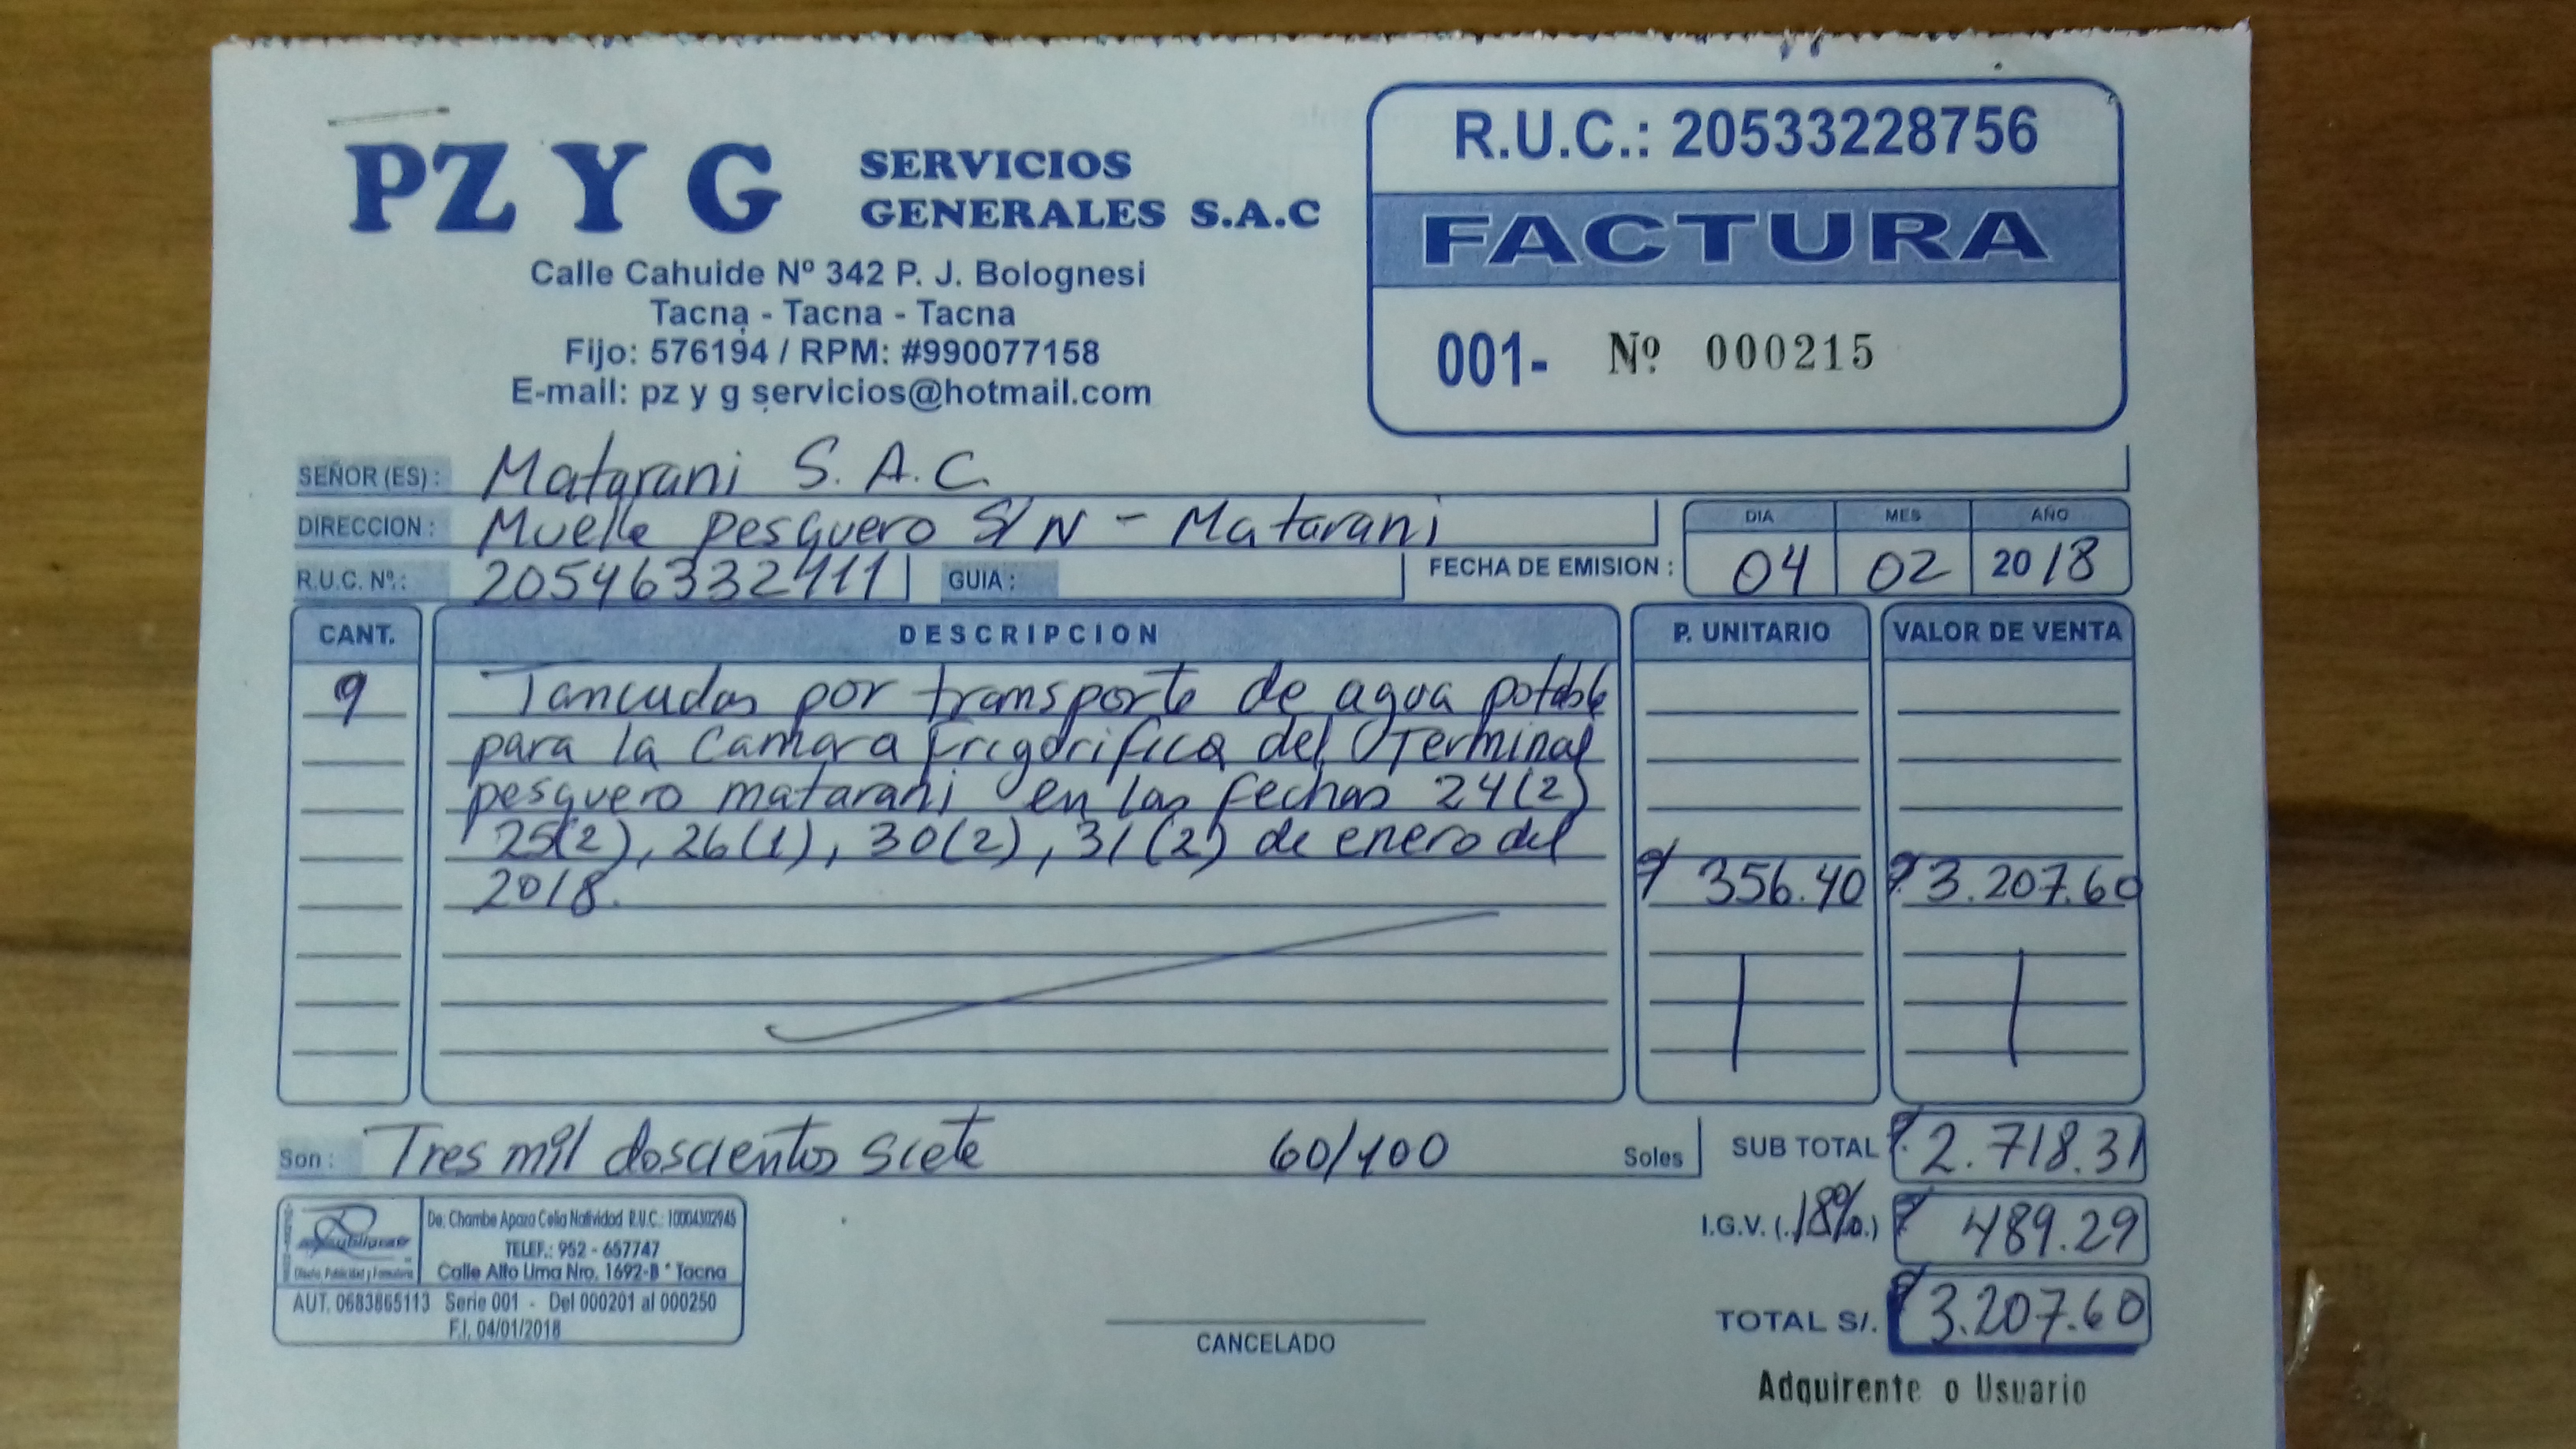 PZ Y G SERVICIOS GENERALES S.A.C
Calle Cahuide Nº 342 P. J. Bolognesi
Tacna - Tacna - Tacna
Fijo: 576194 / RPM: #990077158
E-mail: pz y g servicios@hotmail.com
R.U.C.: 20533228756
FACTURA
001- Nº 000215
SEÑOR (ES) : Matarani S.A.C.
DIRECCION : Muelle pesquero S/N - Matarani
R.U.C. Nº.: 20546332411 GUIA :
FECHA DE EMISION : DIA 04 MES 02 AÑO 2018
CANT. DESCRIPCION P. UNITARIO VALOR DE VENTA
9 Tancudas por transporte de agua potable
para la Camara frigorifica del Terminal
pesquero matarani en las fechas 24(2)
25(2), 26(1), 30(2), 31(2) de enero del
2018. 356.40 3.207.60
Son : Tres mil doscientos siete 60/100 Soles
SUB TOTAL 2.718.31
I.G.V. (.18%.) 489.29
TOTAL S/. 3.207.60
De: Chambe Apaza Celia Natividad R.U.C.: 10004302945
TELEF.: 952 - 657747
Calle Alto Lima Nro. 1692-B * Tacna
AUT. 0683865113 Serie 001 - Del 000201 al 000250
F.I. 04/01/2018
CANCELADO
Adquirente o Usuario